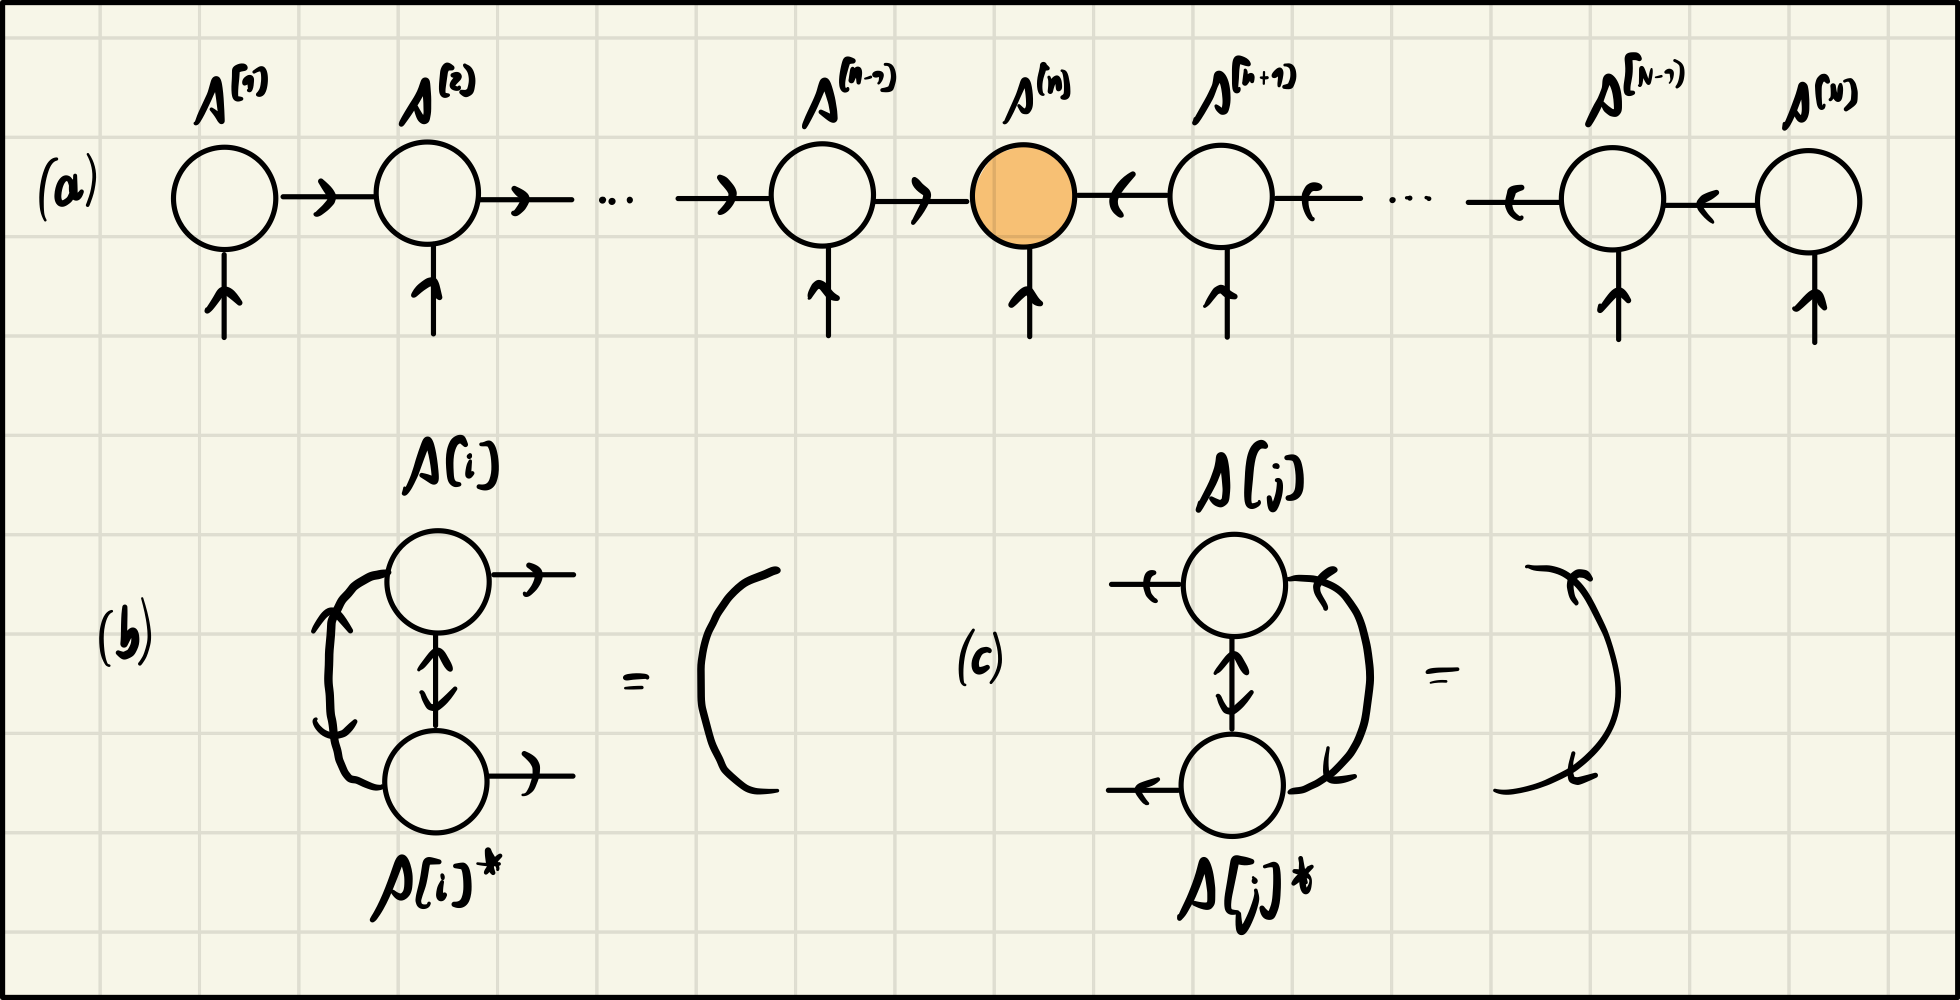 A[1] A[2] A[n-1] A[n] A[n+1] A[N-1] A[N]
(a) ... ...
A[i] A[j]
(b) = (c) =
A[i]* A[j]*